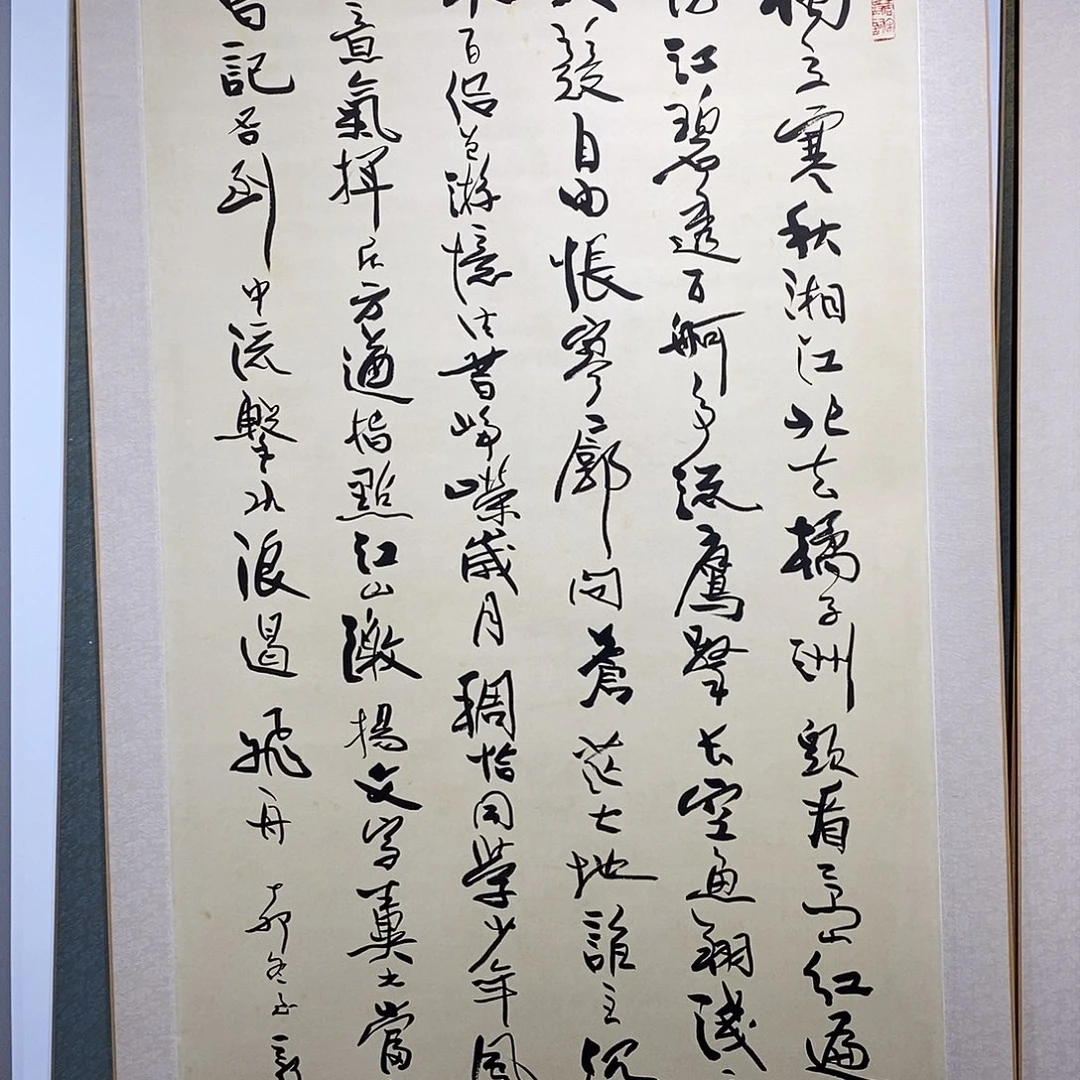 獨立寒秋湘江北去橘子洲頭看萬山紅遍
江碧透百舸爭流鷹擊長空魚翔淺
競自由悵寥廓問蒼茫大地誰主沉
來百侣曾游憶往昔崢嶸歲月稠恰同學少年風
意氣揮斥方遒指點江山激揚文字糞土當
曾記否到中流擊水浪遏飛舟 丁卯冬